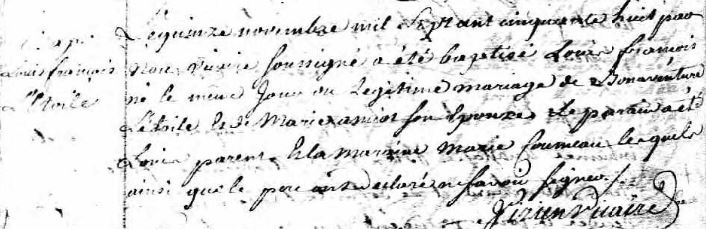 Louis françois
L'Etoile
Le quinze novembre mil Sept cent cinquante huit par
nous vicaire soussigné a été baptisé Louis françois
né le meme jour du legitime mariage de Bonaventure
L'etoile Et de Marie amiot son Epouse Le parain a été
Louis parent Et la marraine Marie lesquels
ainsi que le pere ont declaré ne savoir signer
vicaire